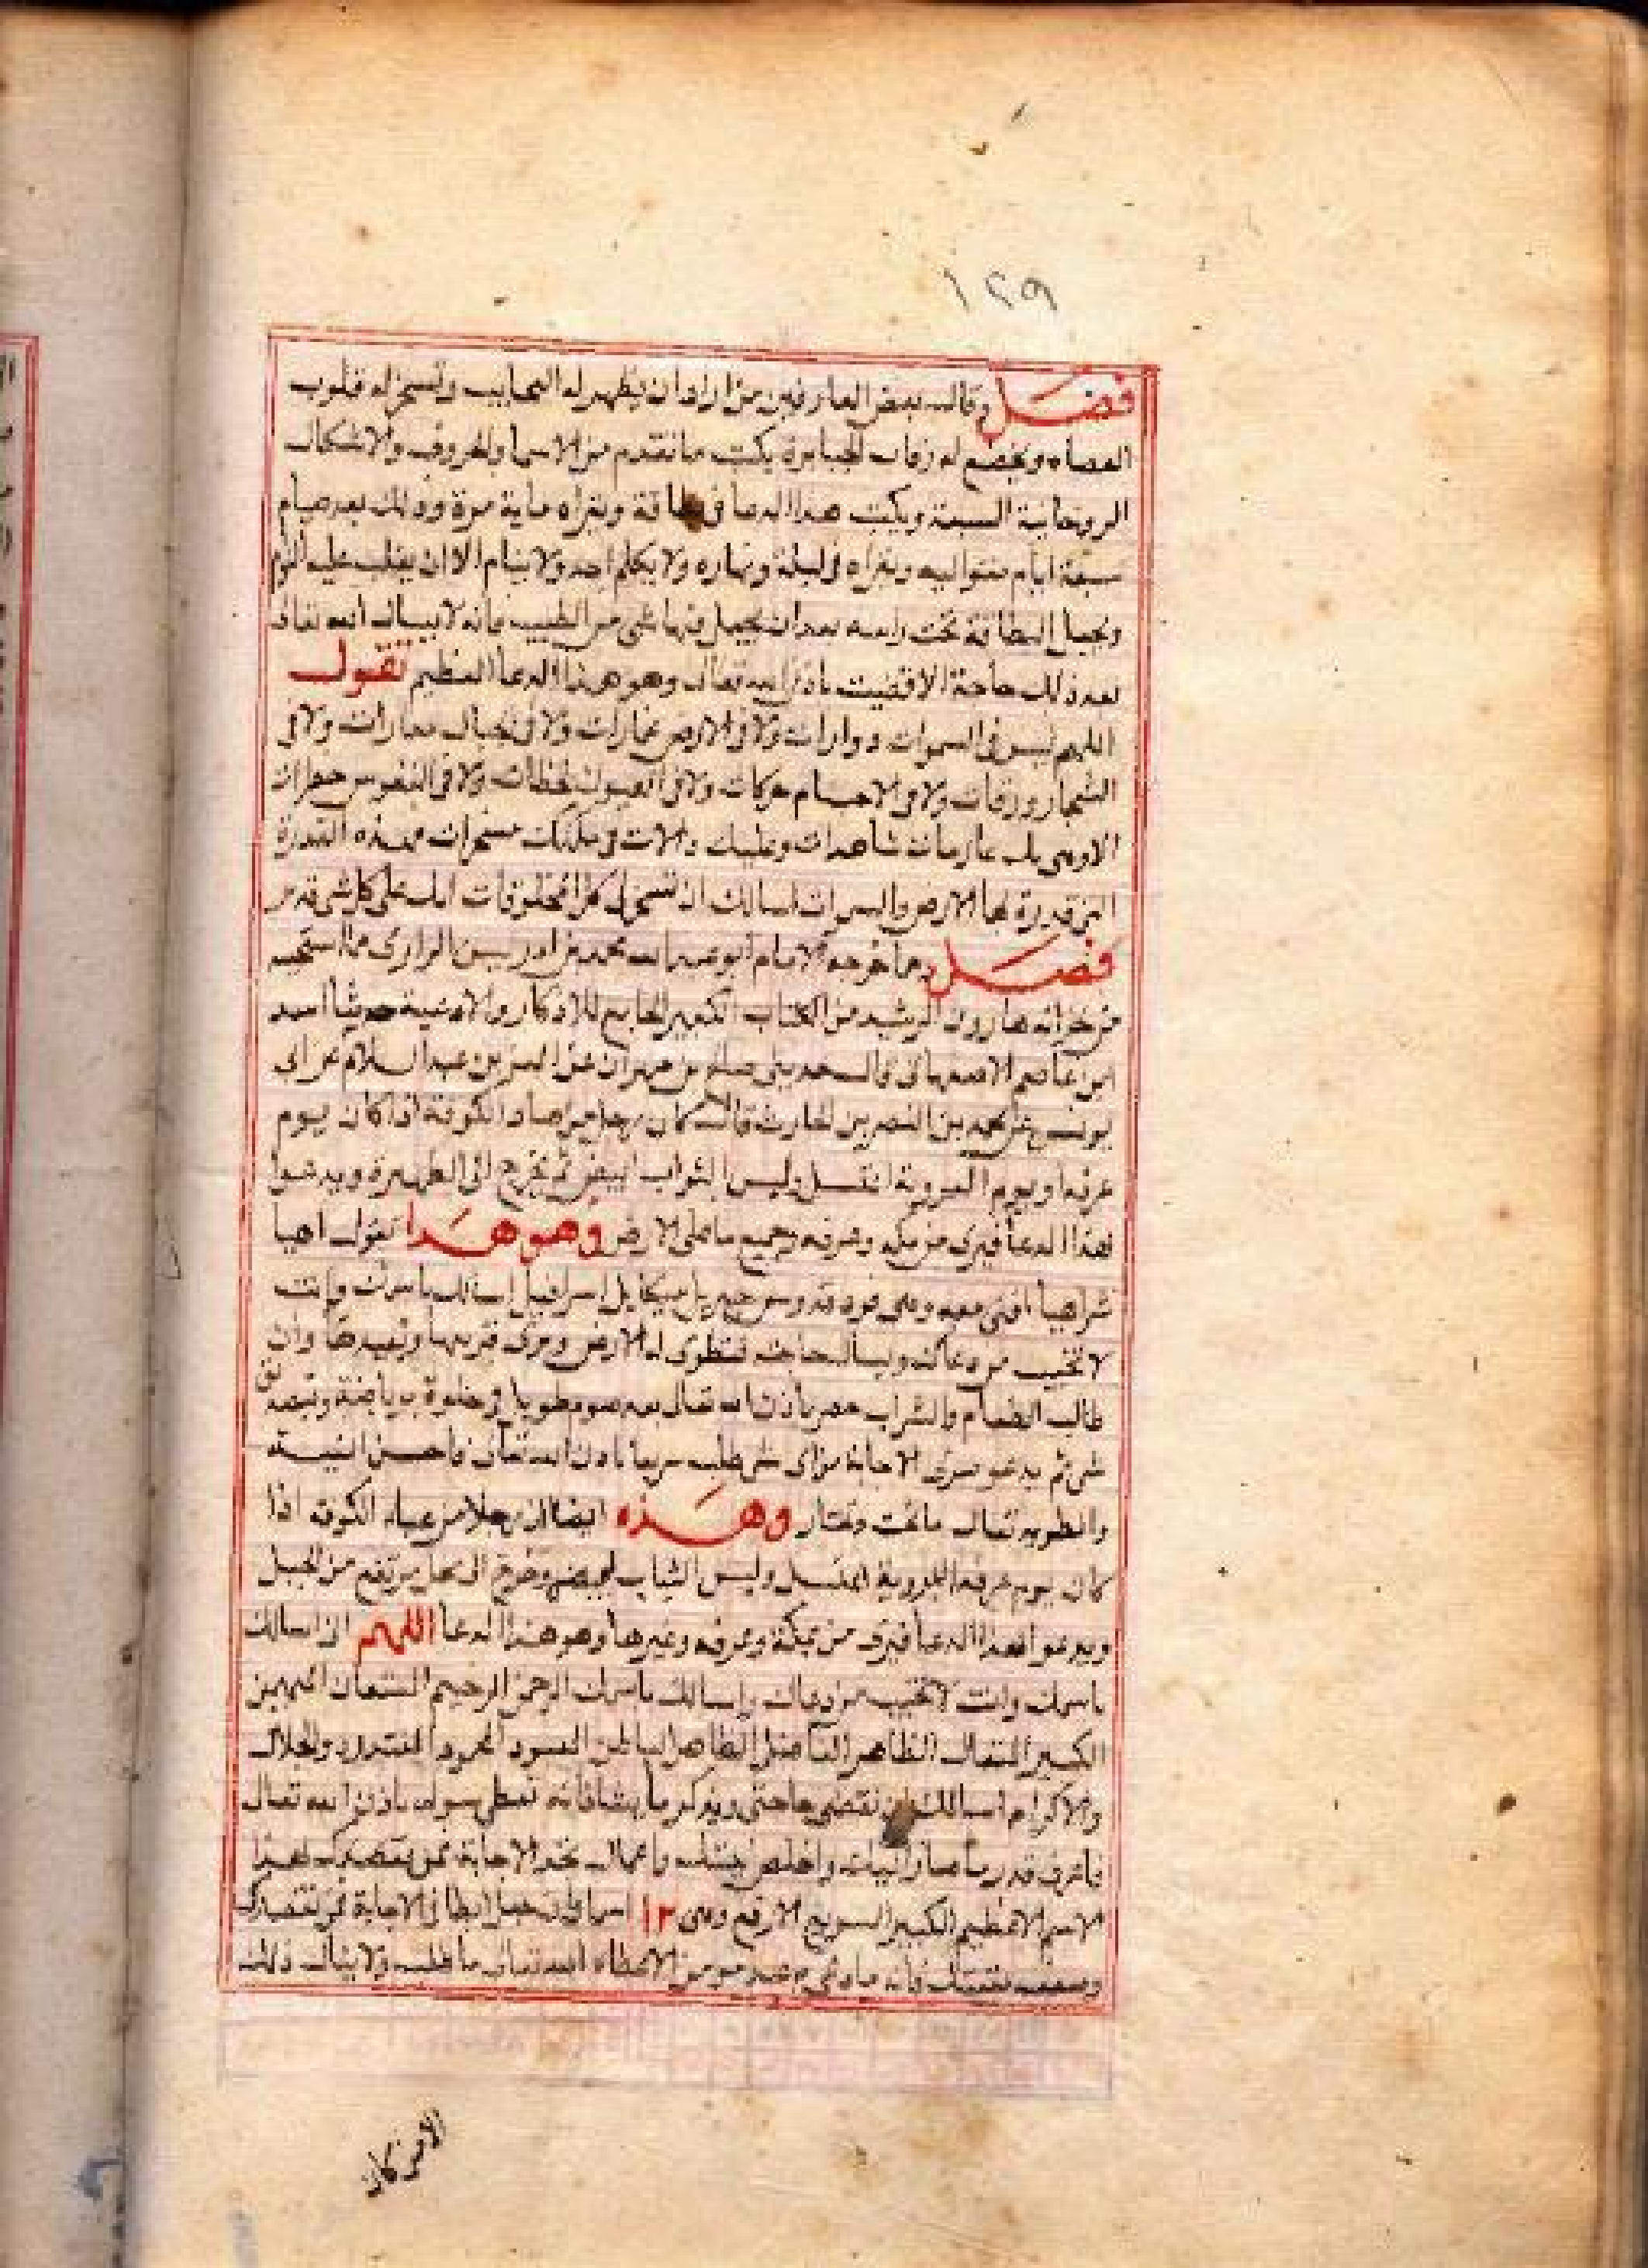 ١٢٩
فصل وقال بعض العارفين من اراد ان يظهر له العجايب وتسخر له قلوب
العصاه ويخضع له رقاب الجبابرة يكتب ما تقدم من الاسما والحروف والاشكال
الروحانية السبعة ويكتب هذا الدعا في طاقة ويقراه ماية مرة وذلك بعد صيام
سبعة ايام متواليه ويقراه في ليله ونهاره ولا يكلم احد ولا ينام الا ان يغلب عليه النوم
ويجعل البطاقة تحت راسه بعد ان يجعل فيها شي من الطيب فانه لا يسال الله تعالى
بعد ذلك حاجة الا قضيت باذن الله تعالى وهو هذا الدعا العظيم تقول
اللهم ليس في السموات دوارات ولا في الارض غمارات ولا في الجبال ولا في
الشجار ورقات ولا في الاجسام حركات ولا في العيون لحظات ولا في النفوس خطرات
الا وهي بك عارفات شاهدات وعليك دالات في ملكك مسخرات فبهذه القدرة
التي بها الارض والسموات اسالك ان تسخر لي كل المخلوقات انك على كل شي قدير
فصل ومما خرجه الامام ابو عبد الله محمد بن ادريس الرازي مما استحسنه
من خزانه هارون الرشيد من الكتاب الكبير الجامع للاذكار والادعية حدثنا اسد
ابن عاصم الاصفهاني قال حدثني صالح بن مهران عن بن عبد السلام عن ابي
يونس عن محمد بن النصر بن الحارث قال كان رجل من عباد الكوفة اذا كان يوم
عرفه او يوم العروبة اغتسل ولبس اثواب ابيض ثم يخرج الى الظهيرة ويدعوا
بهذا الدعا فيرى من مكه وعرفه وجميع ما على الارض وهو هذا تقول اهيا
شراهيا ميكايل اسرافيل اسالك باسمك وانت
لا تخيب من دعاك ويسال حاجته فتطوى له الارض ويرى قريبها وبعيدها وان
طالب الطعام والشراب حضر باذن الله تعالى بعد صوم طويل وخلوة برياضة وتصدق
شي ثم يدعو يرى الاجابة من اي شي طلبه سريعا باذن الله تعالى فاحسن النيه
وانظر ما تحب وتختار وهذه ايضا ان رجلا من عباد الكوفه اذا
كان يوم عرفه العروبة اغتسل ولبس الثياب البيض وخرج الى محل مرتفع من الجبل
ويدعوا بهذا الدعا فيرى من بمكة وعرفه وغيرها وهو هذا الدعا اللهم اني اسالك
باسمك وانت لا تخيب من دعاك واسالك باسمك الرحمن الرحيم المستعان المهيمن
الكبير المتعال الظاهر الظاهر الباطن المحمود المقتدر ذو الجلال
والاكرام اسالك ان تقضي حاجتي ويذكر ما يشا فانه تعطى سوله باذن الله تعالى
فاعرف قدر ما صار اليك واخلص نيتك واعمالك تجد الاجابة
الاسم الاعظيم الكبير السريع الارفع وهي ١٢ اسما فان حصل ابطا في الاجابة
فانه ما دعي به عبد مومن الا اعطاه الله تعالى ما طلب ولا ينال ذلك
الا من كان